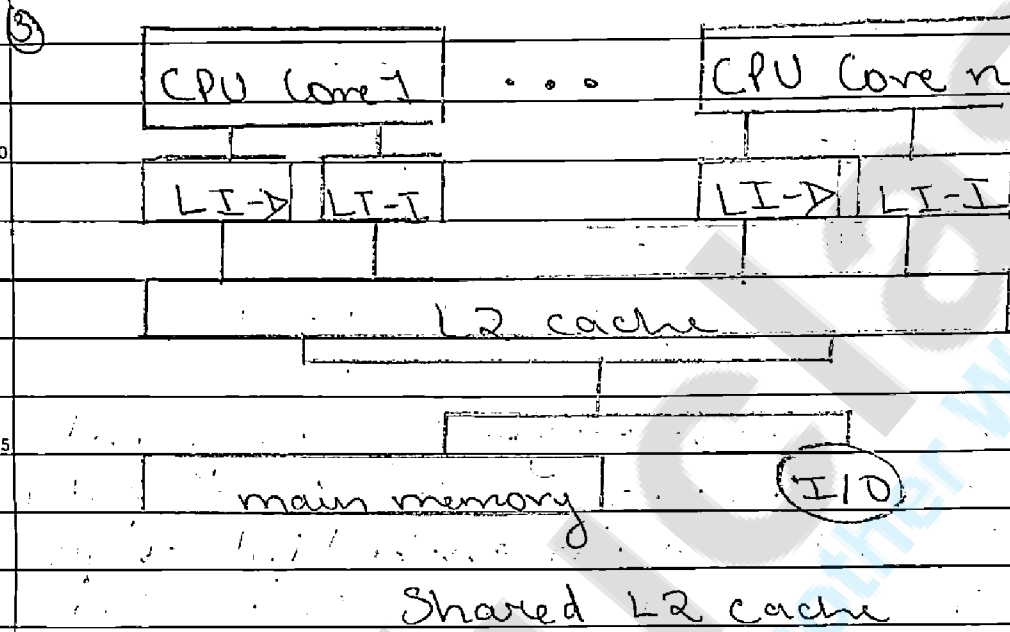 ③
CPU Core 1 . . . CPU Core n
LI-D LI-I LI-D LI-I
L2 cache
main memory I/O
Shared L2 cache